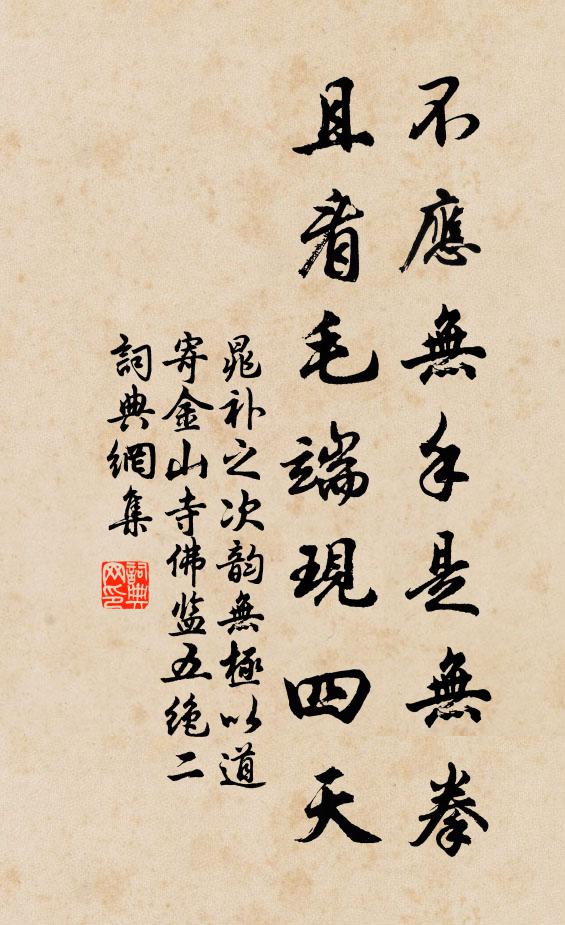 不應無手是無拳
且看毛端現四天
晁补之次韵無極以道
寄金山寺佛监五绝二
詞典網集
詞典网印